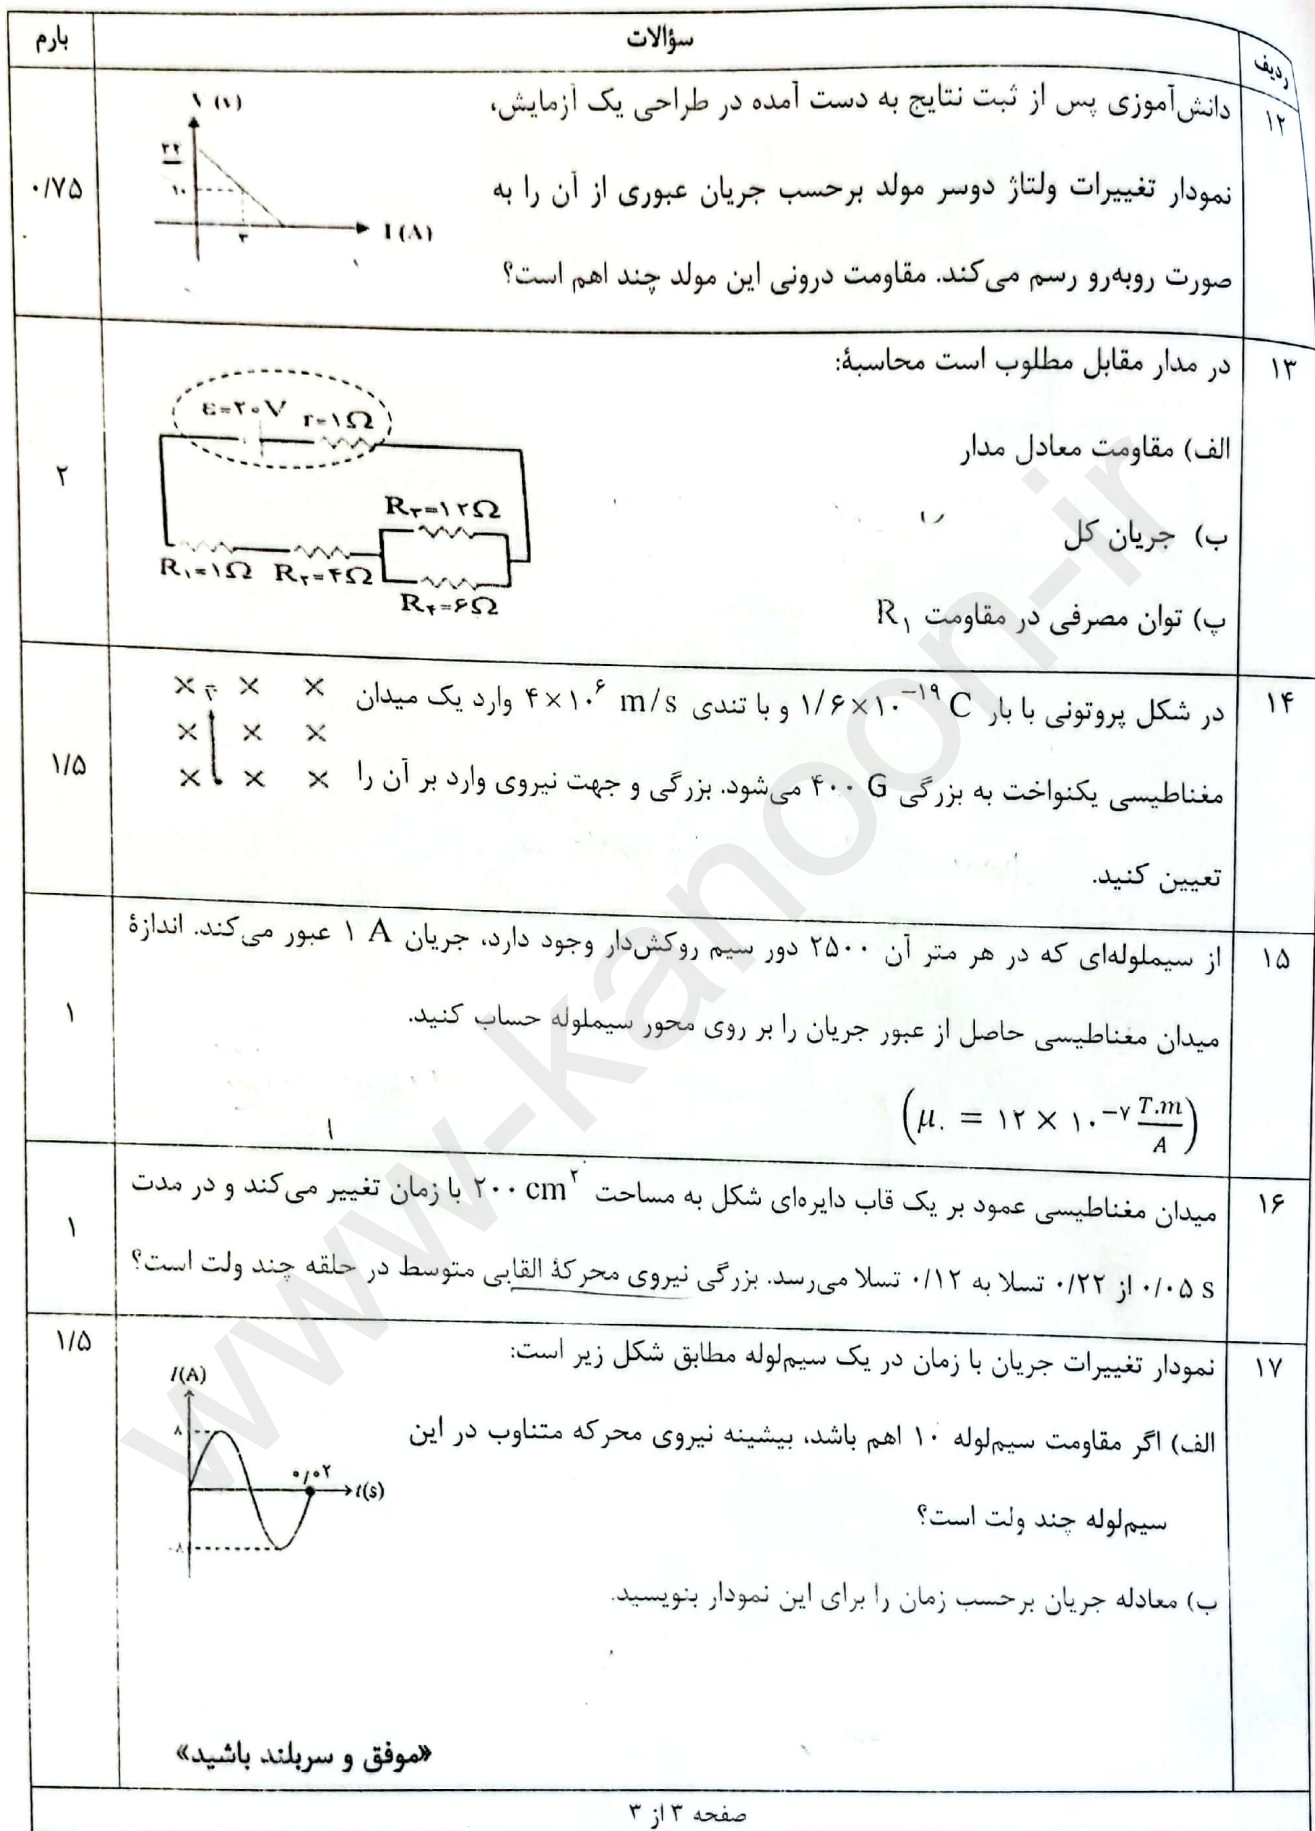 ردیف
سؤالات
بارم
۱۲
دانش‌آموزی پس از ثبت نتایج به دست آمده در طراحی یک آزمایش،
نمودار تغییرات ولتاژ دوسر مولد برحسب جریان عبوری از آن را به
صورت روبه‌رو رسم می‌کند. مقاومت درونی این مولد چند اهم است؟
۰/۷۵
V (v)
۲۲
۱۰
۳
I (A)
۱۳
در مدار مقابل مطلوب است محاسبهٔ:
الف) مقاومت معادل مدار
ب) جریان کل
پ) توان مصرفی در مقاومت R₁
۲
ε=۲۰V r=۱Ω
R₃=۱۲Ω
R₁=۱Ω R₂=۴Ω
R₄=۶Ω
۱۴
در شکل پروتونی با بار ۱/۶×۱۰⁻¹⁹ C و با تندی ۴×۱۰⁶ m/s وارد یک میدان
مغناطیسی یکنواخت به بزرگی ۴۰۰ G می‌شود. بزرگی و جهت نیروی وارد بر آن را
تعیین کنید.
۱/۵
× × ×
× × ×
× × ×
۱۵
از سیملوله‌ای که در هر متر آن ۲۵۰۰ دور سیم روکش‌دار وجود دارد، جریان ۱ A عبور می‌کند. اندازهٔ
میدان مغناطیسی حاصل از عبور جریان را بر روی محور سیملوله حساب کنید.
(μ₀ = ۱۲ × ۱۰⁻⁷ T.m/A)
۱
۱۶
میدان مغناطیسی عمود بر یک قاب دایره‌ای شکل به مساحت ۲۰۰ cm² با زمان تغییر می‌کند و در مدت
۰/۰۵ s از ۰/۲۲ تسلا به ۰/۱۲ تسلا می‌رسد. بزرگی نیروی محرکهٔ القایی متوسط در حلقه چند ولت است؟
۱
۱۷
نمودار تغییرات جریان با زمان در یک سیم‌لوله مطابق شکل زیر است:
الف) اگر مقاومت سیم‌لوله ۱۰ اهم باشد، بیشینه نیروی محرکه متناوب در این
سیم‌لوله چند ولت است؟
ب) معادله جریان برحسب زمان را برای این نمودار بنویسید.
۱/۵
I(A)
۸
۰/۰۲
t(s)
-۸
«موفق و سربلند باشید»
صفحه ۳ از ۳
www-kanoon-ir